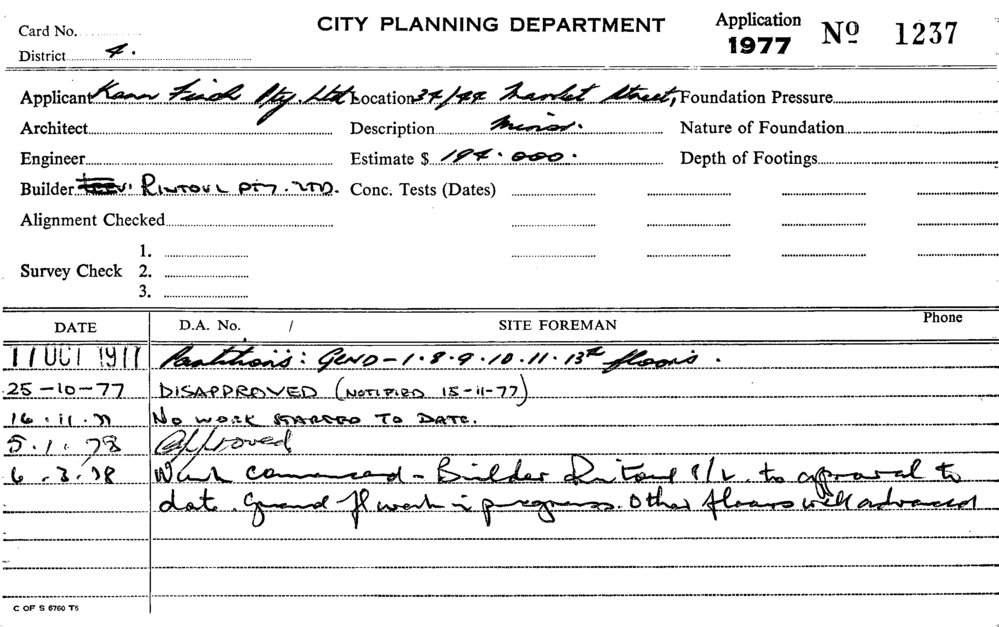 Card No.
CITY PLANNING DEPARTMENT
Application 1977 Nº 1237
District 4.
Applicant Kann Finch Pty. Ltd Location 34/44 Market Street, Foundation Pressure
Architect Description Minor. Nature of Foundation
Engineer Estimate $ 194.000. Depth of Footings
Builder RINTOUL PTY. LTD. Conc. Tests (Dates)
Alignment Checked
1.
Survey Check 2.
3.
DATE D.A. No. / SITE FOREMAN Phone
11 OCT 1977 Partitions: GRND-1.8.9.10.11.13th floors.
25-10-77 DISAPPROVED (NOTIFIED 15-11-77)
16.11.77 NO WORK STARTED TO DATE.
5.1.78 Approved
6.3.78 Work commenced - Builder Rintoul P/L. to approval to
date. Ground fl work in progress. Other floors well advanced
C OF S 6760 T5